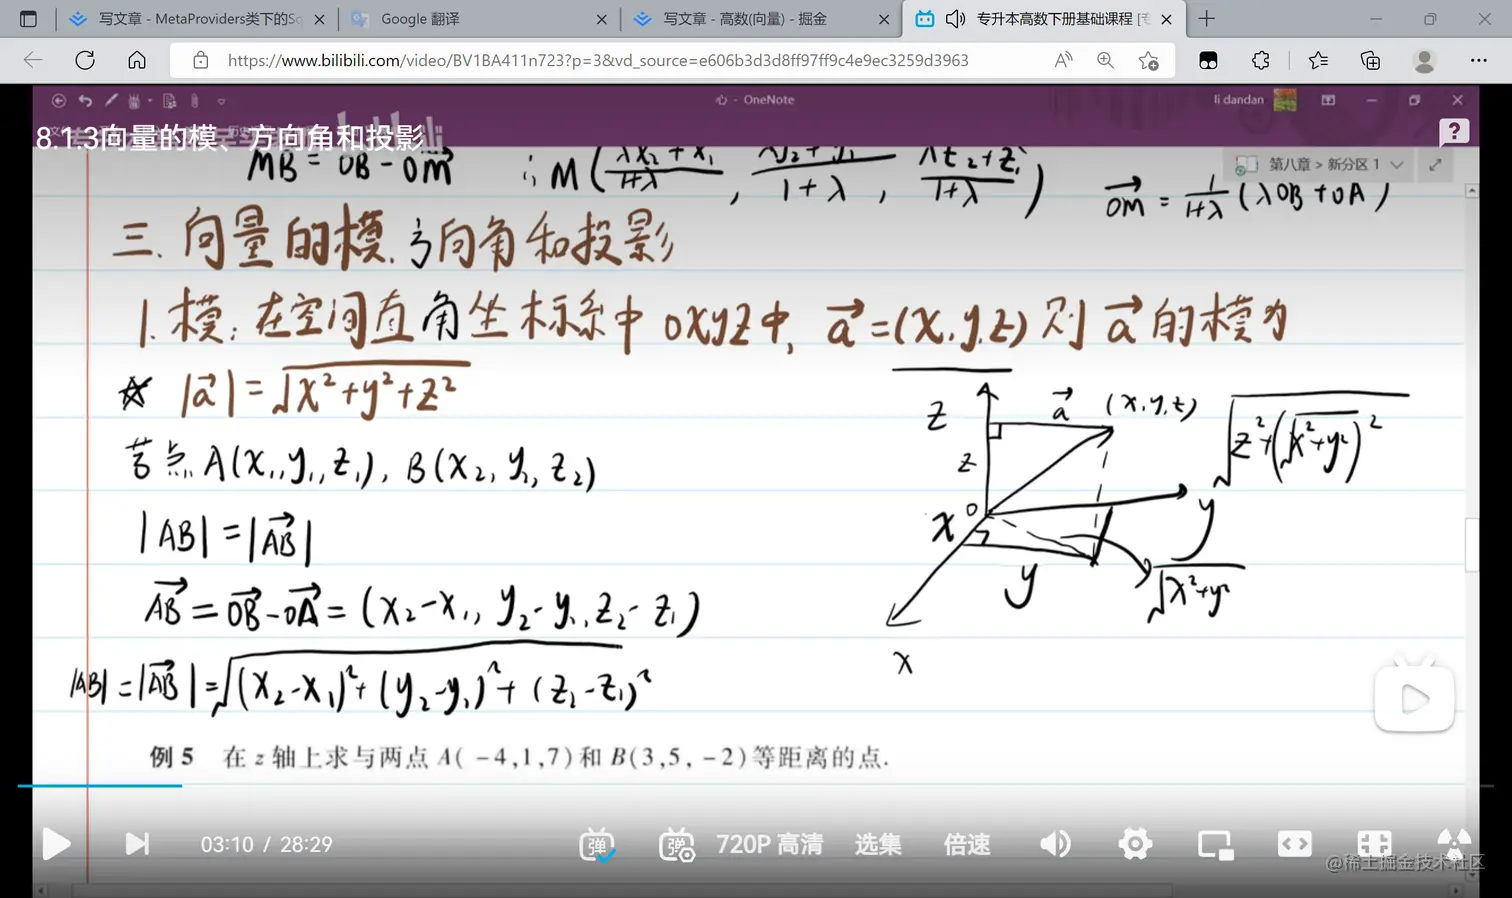 写文章 - MetaProviders类下的Sq
Google 翻译
写文章 - 高数(向量) - 掘金
专升本高数下册基础课程 [专
https://www.bilibili.com/video/BV1BA411n723?p=3&vd_source=e606b3d3d8ff97ff9c4e9ec3259d3963
- OneNote
li dandan
8.1.3向量的模、方向角和投影
第八章 > 新分区 1
MB = OB - OM ∴ M( (λx₂+x₁)/(1+λ), (λy₂+y₁)/(1+λ), (λz₂+z₁)/(1+λ) ) OM = 1/(1+λ) (λOB+OA)
三.向量的模.方向角和投影
1.模:在空间直角坐标系中 oxyz中, a=(x,y,z) 则 a 的模为
☆ |a| = √(x²+y²+z²)
z a (x,y,z) √(z²+(√(x²+y²))²)
z
若点 A(x₁,y₁,z₁), B(x₂,y₂,z₂)
x o y
|AB| = |AB|
y √(x²+y²)
AB = OB - OA = (x₂-x₁, y₂-y₁, z₂-z₁)
x
|AB| = |AB| = √((x₂-x₁)²+(y₂-y₁)²+(z₂-z₁)²)
例 5 在 z 轴上求与两点 A(-4,1,7)和 B(3,5,-2)等距离的点.
03:10 / 28:29 弹 弹 720P 高清 选集 倍速
@稀土掘金技术社区